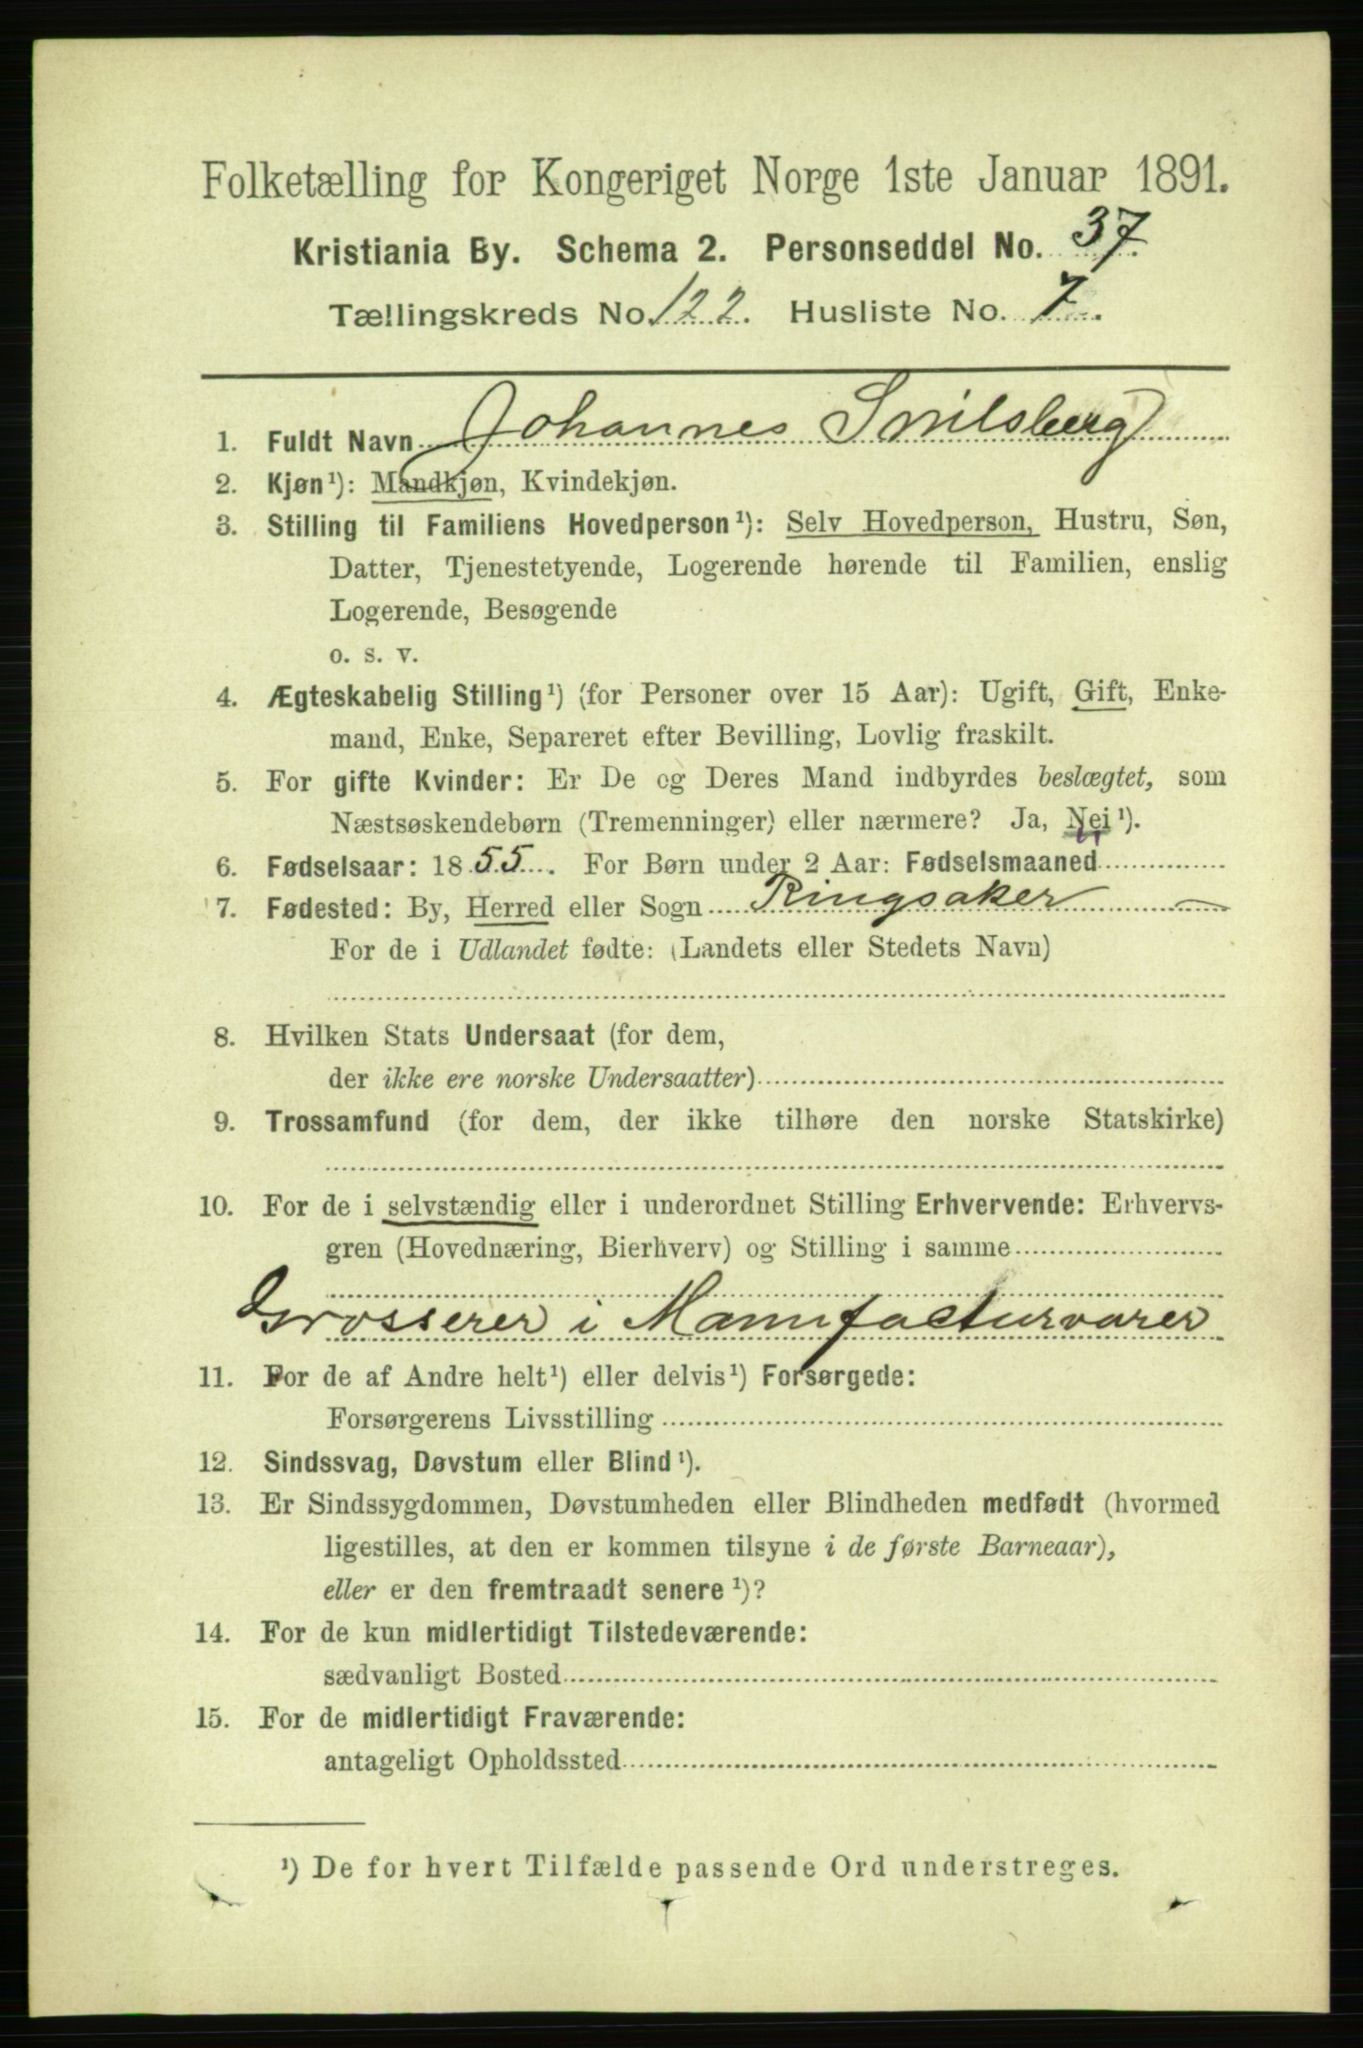 Folketælling for Kongeriget Norge 1ste Januar 1891.
Kristiania By. Schema 2. Personseddel No. 37.
Tællingskreds No. 122. Husliste No. 7.
1. Fuldt Navn Johannes Snilsberg
2. Kjøn¹): Mandkjøn, Kvindekjøn.
3. Stilling til Familiens Hovedperson¹): Selv Hovedperson, Hustru, Søn,
Datter, Tjenestetyende, Logerende hørende til Familien, enslig
Logerende, Besøgende
o. s. v.
4. Ægteskabelig Stilling¹) (for Personer over 15 Aar): Ugift, Gift, Enke-
mand, Enke, Separeret efter Bevilling, Lovlig fraskilt.
5. For gifte Kvinder: Er De og Deres Mand indbyrdes beslægtet, som
Næstsøskendebørn (Tremenninger) eller nærmere? Ja, Nei¹).
6. Fødselsaar: 1855. For Børn under 2 Aar: Fødselsmaaned
7. Fødested: By, Herred eller Sogn Ringsaker
For de i Udlandet fødte: (Landets eller Stedets Navn)
8. Hvilken Stats Undersaat (for dem,
der ikke ere norske Undersaatter)
9. Trossamfund (for dem, der ikke tilhøre den norske Statskirke)
10. For de i selvstændig eller i underordnet Stilling Erhvervende: Erhvervs-
gren (Hovednæring, Bierhverv) og Stilling i samme
Grosserer i Manufacturvarer
11. For de af Andre helt¹) eller delvis¹) Forsørgede:
Forsørgerens Livsstilling
12. Sindssvag, Døvstum eller Blind¹).
13. Er Sindssygdommen, Døvstumheden eller Blindheden medfødt (hvormed
ligestilles, at den er kommen tilsyne i de første Barneaar),
eller er den fremtraadt senere¹)?
14. For de kun midlertidigt Tilstedeværende:
sædvanligt Bosted
15. For de midlertidigt Fraværende:
antageligt Opholdssted
¹) De for hvert Tilfælde passende Ord understreges.